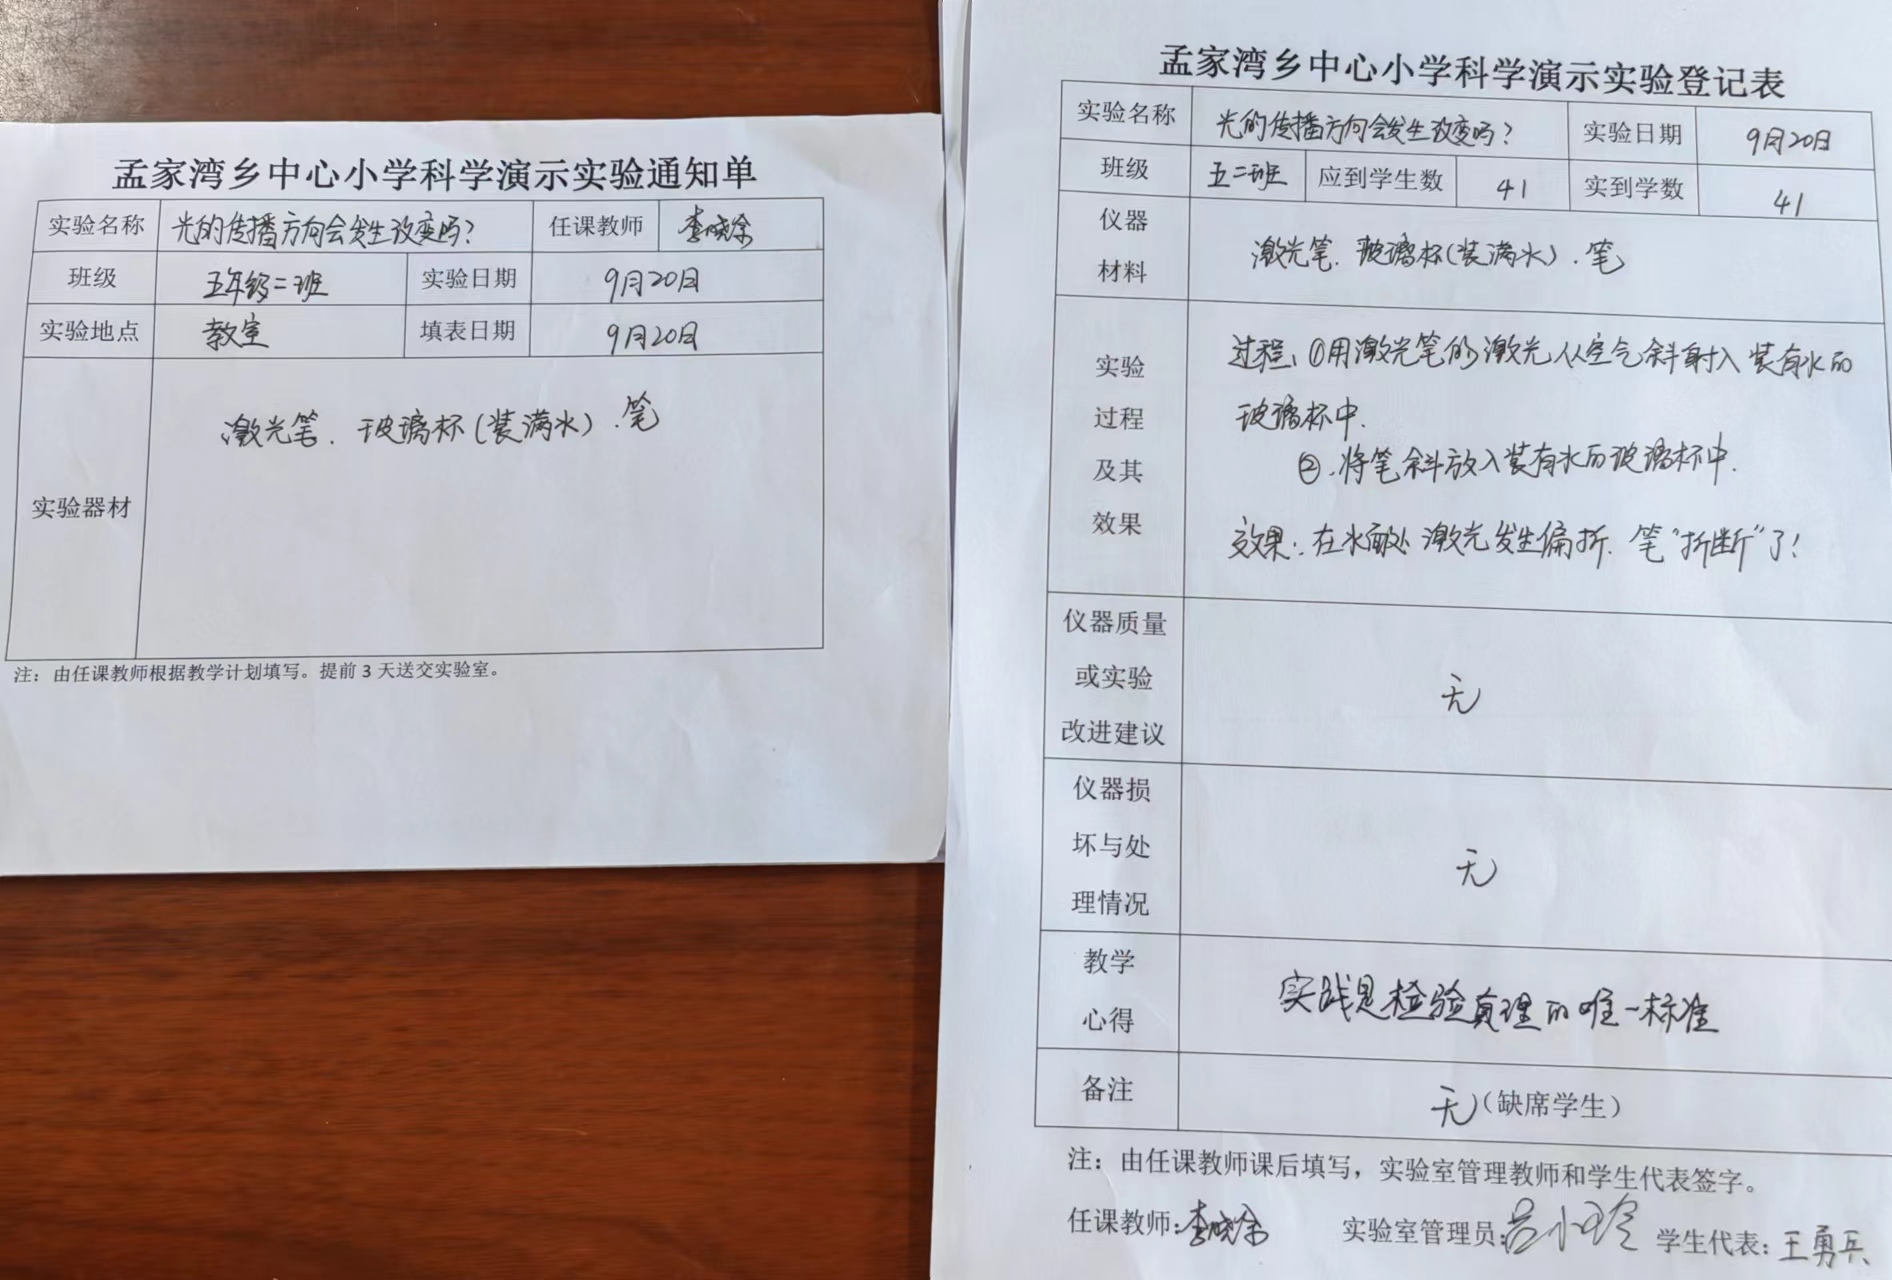 孟家湾乡中心小学科学演示实验通知单
实验名称 光的传播方向会发生改变吗? 任课教师 李晓余
班级 五年级二班 实验日期 9月20日
实验地点 教室 填表日期 9月20日
实验器材 激光笔、玻璃杯(装满水)、笔
注：由任课教师根据教学计划填写。提前3天送交实验室。
孟家湾乡中心小学科学演示实验登记表
实验名称 光的传播方向会发生改变吗? 实验日期 9月20日
班级 五二班 应到学生数 41 实到学数 41
仪器
材料
激光笔、玻璃杯(装满水)、笔
实验
过程
及其
效果
过程：①用激光笔的激光从空气斜射入装有水的
玻璃杯中.
②.将笔斜放入装有水的玻璃杯中.
效果：在水面处激光发生偏折. 笔"折断"了!
仪器质量
或实验
改进建议
无
仪器损
坏与处
理情况
无
教学
心得
实践是检验真理的唯一标准
备注 无(缺席学生)
注：由任课教师课后填写，实验室管理教师和学生代表签字。
任课教师:李晓余 实验室管理员:吕小玲 学生代表:王勇兵